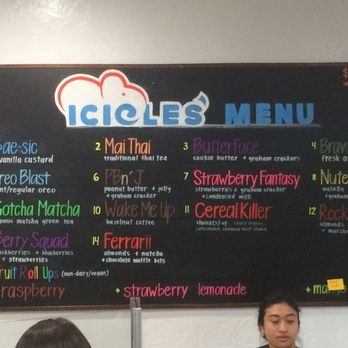 ICICLES' MENU
ae-sic
vanilla custard
2 Mai Thai
traditional thai tea
3 Butterface
cookie butter + graham crackers
4 Brav
Fresh
reo Blast
nt/regular oreo
6 PB n' J
peanut butter + jelly
+ graham crackers
7 Strawberry Fantasy
strawberries + graham crackers
+ condensed milk
8 Nute
nutella +
Gotcha Matcha
organic matcha green tea
10 Wake Me Up
hazelnut coffee
11 Cereal Killer
12 Rock
almonds +
+ marsh
Berry Squad
blackberries + blueberries
+ strawberries
14 Ferrarii
almonds + nutella
+ chocolate waffle bits
Fruit Roll Ups (non-dairy/vegan)
raspberry
+ strawberry lemonade
+ man